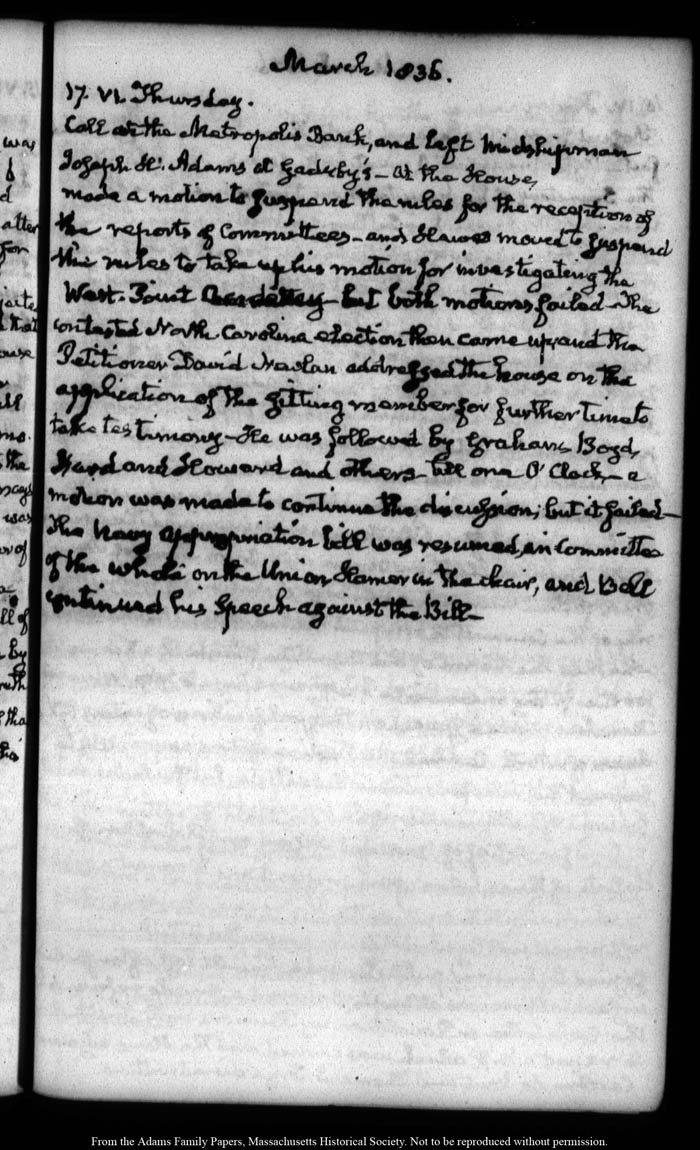 March 1836.
17. VI. Thursday.
Call at the Metropolis Bank, and left Midshipman
Joseph H. Adams at Gadsby's – At the House,
made a motion to suspend the rules for the reception of
the reports of Committees – and Hawes moved to suspend
the rules to take up his motion for investigating the
West-Point Academy – but both motions failed – The
contested North Carolina election then came up, and the
Petitioner David Newlan addressed the house on the
application of the sitting member for further time to
take testimony – He was followed by Graham, Boyd,
Hard and Howard and others till one O'Clock – a
motion was made to continue the discussion; but it failed –
The Navy appropriation bill was resumed, in Committee
of the whole on the Union Hamer in the chair, and Bell
continued his Speech against the Bill –
was
d
after
for
that
ouse
all
the
was
of
by
that
his
From the Adams Family Papers, Massachusetts Historical Society. Not to be reproduced without permission.